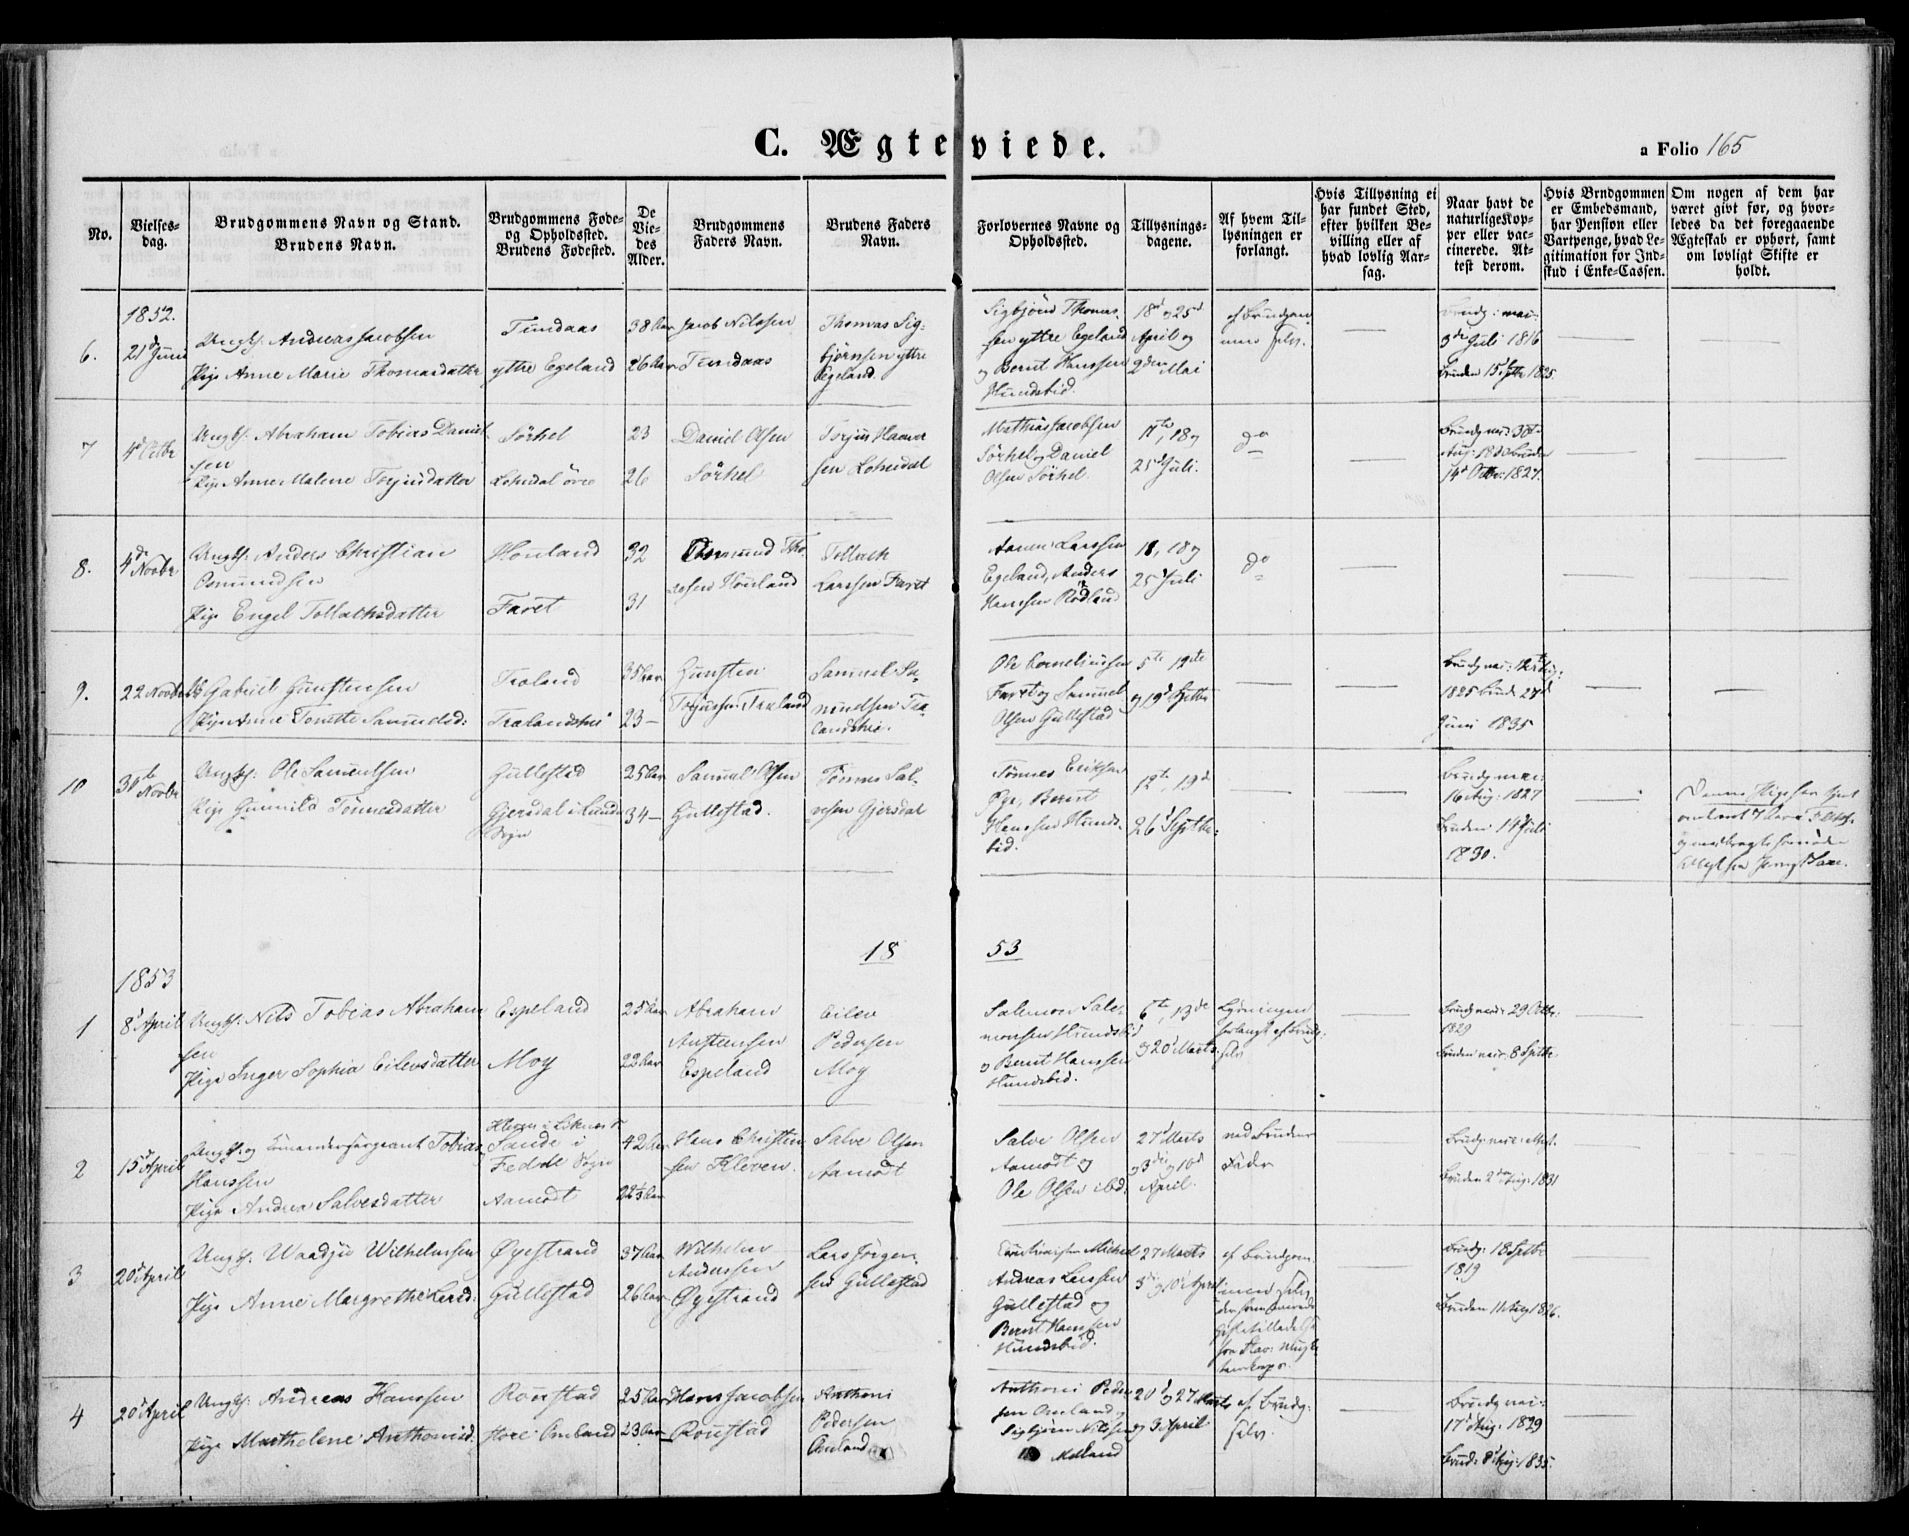 C. Ægteviede.
a Folio 165
No.
Vielses-
dag.
Brudgommens Navn og Stand.
Brudens Navn.
Brudgommens Føde-
og Opholdssted.
Brudens Fødested.
De
Vie-
des
Alder.
Brudgommens
Faders Navn.
Brudens Faders
Navn.
Forlovernes Navne og
Opholdssted.
Tillysnings-
dagene.
Af hvem Til-
lysningen er
forlangt.
Hvis Tillysning ei
har fundet Sted,
efter hvilken Be-
villing eller af
hvad lovlig Aar-
sag.
Naar havt de
naturlige Kop-
per eller vac-
cinerede. At-
test derom.
Hvis Brudgommen
er Embedsmand,
har Pension eller
Vartpenge, hvad Le-
gitimation for Ind-
skud i Enke-Cassen.
Om nogen af dem har
været givt før, og hvor-
ledes da det foregaaende
Ægteskab er ophørt, samt
om lovligt Skifte er
holdt.
1852.
6.
21d Juni
Ungk. Andreas Jacobsen
Pige Anne Marie Thomasdatter
Tundaas
ytre Egeland
38 Aar
26 Aar
Jacob Nilssen
Tundaas
Thomas Sig-
bjørnsen ytre
Egeland.
Sigbjörn Thomas-
sen yttre Egeland
og Bernt Hanssen
Hundsbid.
18d og 25d
April og
2den Mai
af Brudgom-
men selv.
Brudg: vac:
3die Juli 1816
Bruden 15d Sptb 1825.
7
4d Octbr
Ungk. Abraham Tobias Daniel-
sen
Pige Anne Malene Torjusdatter
Sörhel
Lohndal övre
23
26
Daniel Olsen
Sörhel
Torjus Haaver
sen Lohndal
Mathias Jacobsen
Sörhel og Daniel
Olsen Sörhel.
11te, 18 og
25d Juli.
do
Brudg vac: 30te
Aug: 1830 Bruden
14d Octbr: 1827.
8.
4de Novbr
Ungk. Anders Christian
Osmundsen
Pige Engel Tollachsdatter
Houland
Faret
32
31
Osmund Tho
resen Houland
Tollach
Larssen Faret
Aanen Larssen
Egeland, Anders
Hanssen Rödland
11, 18 og
25d Juli
do
9.
22 Novbr
Gabriel Gunstensen
Pige Anne Tomette Samuelsd:
Traland
Tralandshei
35 Aar
23 —
Gunsten
Torjussen Traland
Samuel Sa-
muelsen Tra-
landshei.
Ole Corneliussen
Faret og Samuel
Olsen Gullestad
5te 12te
og 19d Septbr
1825 Brud 27d
Juni 1835
10
30te
Novbr
Ungk. Ole Samuelsen
Pige Gunnild Tönnesdatter
Gullestad
Gjersdal i Lunds
Sogn
25 Aar
34 —
Samuel Olsen
Gullestad.
Tönnes Sal-
vesen Gjersdal
Tönnes Eriksen
Øye, Bernt
Hanssen Hunds-
bid.
12te, 19d
26d Septbr:
Brudg vac:
16 Aug: 1827
Bruden 14 Juli
1830.
Denne Pige har
18 53
1853
1
8d April
Ungk. Nils Tobias Abraham
sen
Pige Inger Sophia Eilevsdatter
Espeland
Moy
25 Aar
22 Aar
Abraham
Austensen
Espeland
Eilev
Pedersen
Moy
Salomon Salo-
monsen Hundsbid
og Bernt Hanssen
Hundsbid.
6te, 13de
og 20d Marts
Lysningen
forlangt af Brudg:
selv
Brudg vac: 29 Octbr:
1829
Bruden vac: 8 Septbr.
2
15d April
Ungk. og Commandersergeant Tobias
Hanssen
Pige Andrea Salvesdatter
Kleven i
Sande i
Fedde Sogn
Aamodt
42 Aar
22½ Aar
Hans Christen
sen Kleven.
Salve Olsen
Aamodt
Salve Olsen
Aamodt og
Ole Olsen ibd:
27d Marts
og 3die og 10d
April.
ved Brudens
Fader
Bruden 2den Aug: 1831
3
20d April
Ungk. Waadju Wilhelmsen
Pige Anne Margrethe Larsd:
Øyestrand
Gullestad
37 Aar
26 Aar
Wilhelm
Anderssen
Øyestrand
Lars Jörgen-
sen Gullestad
Andreas Larssen
Gullestad og
Bernt Hanssen
Hundsbid.
27 Marts
3die og 10d April
af Brudgom-
men selv
Brudg: 18 Septbr
1819
Bruden 11 Aug 1826.
4
20d April
Ungk. Andreas Hanssen
Pige Marthelene Anthonisd.
Roustad
store Omland
25 Aar
23 Aar
Hans Jacobsen
Roustad
Anthoni
Pedersen
Omland
Anthoni Peder
sen Omland og
Sigbjörn Nilssen
Midland
20d og 27 Marts
og 3 April
af Brudg:
selv.
Brudg vac:
17d Aug: 1829
Brud: 8d Aug: 1835.